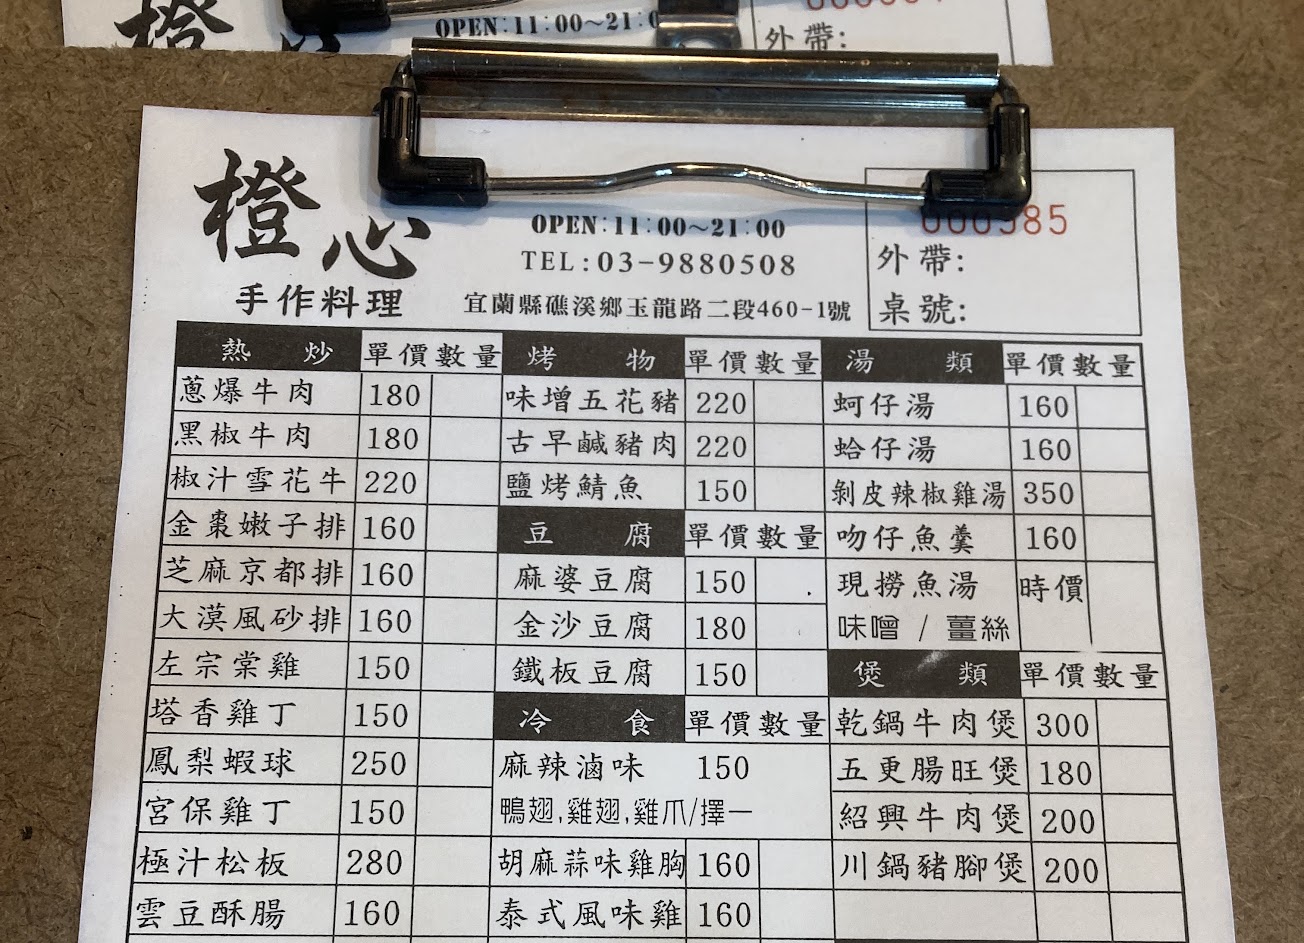 OPEN:11:00~21:0
外帶:
橙心
手作料理
OPEN:11:00~21:00
TEL:03-9880508
宜蘭縣礁溪鄉玉龍路二段460-1號
000385
外帶:
桌號:
熱炒 單價 數量
蔥爆牛肉 180
黑椒牛肉 180
椒汁雪花牛 220
金棗嫩子排 160
芝麻京都排 160
大漠風砂排 160
左宗棠雞 150
塔香雞丁 150
鳳梨蝦球 250
宮保雞丁 150
極汁松板 280
雲豆酥腸 160
烤物 單價 數量
味增五花豬 220
古早鹹豬肉 220
鹽烤鯖魚 150
豆腐 單價 數量
麻婆豆腐 150
金沙豆腐 180
鐵板豆腐 150
冷食 單價 數量
麻辣滷味 150
鴨翅,雞翅,雞爪/擇一
胡麻蒜味雞胸 160
泰式風味雞 160
湯類 單價 數量
蚵仔湯 160
蛤仔湯 160
剝皮辣椒雞湯 350
吻仔魚羹 160
現撈魚湯 時價
味噌 / 薑絲
煲類 單價 數量
乾鍋牛肉煲 300
五更腸旺煲 180
紹興牛肉煲 200
川鍋豬腳煲 200